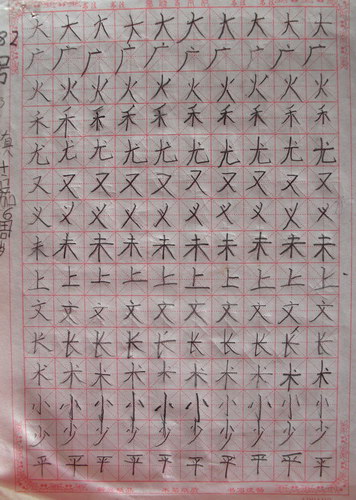 大大大大大大大大大大
广广广广广广广广广广
火火火火火火火火火火
禾禾禾禾禾禾禾禾禾禾
尤尤尤尤尤尤尤尤尤尤
又又又又又又又又又又
义义义义义义义义义义
未未未未未未未未未未
上上上上上上上上上上
文文文文文文文文文文
长长长长长长长长长长
术术术术术术术术术术
小小小小小小小小小小
少少少少少少少少少少
平平平平平平平平平平